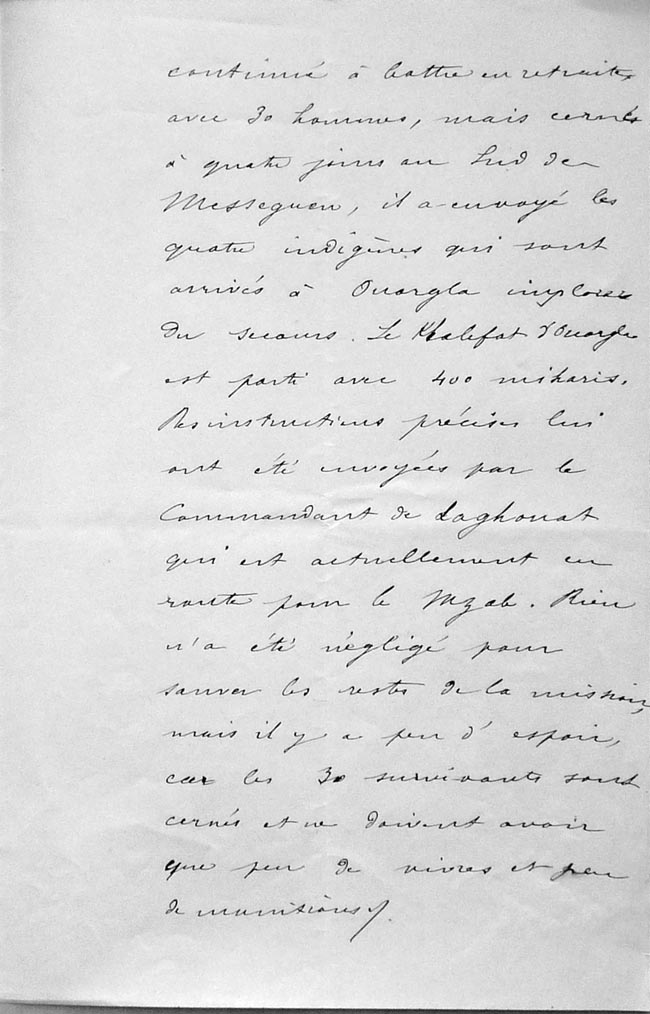 continué à battre en retraite
avec 30 hommes, mais cernés
à quatre jours au Sud de
Messeguen, il a envoyé les
quatre indigènes qui sont
arrivés à Ouargla implorer
du secours. Le Khalifat d'Ouargla
est parti avec 400 miharis.
Des instructions précises lui
ont été envoyées par le
Commandant de Laghouat
qui est actuellement en
route pour le Mzab. Rien
n'a été négligé pour
sauver les restes de la mission,
mais il y a peu d'espoir,
car les 30 survivants sont
cernés et ne doivent avoir
que peu de vivres et peu
de munitions/.